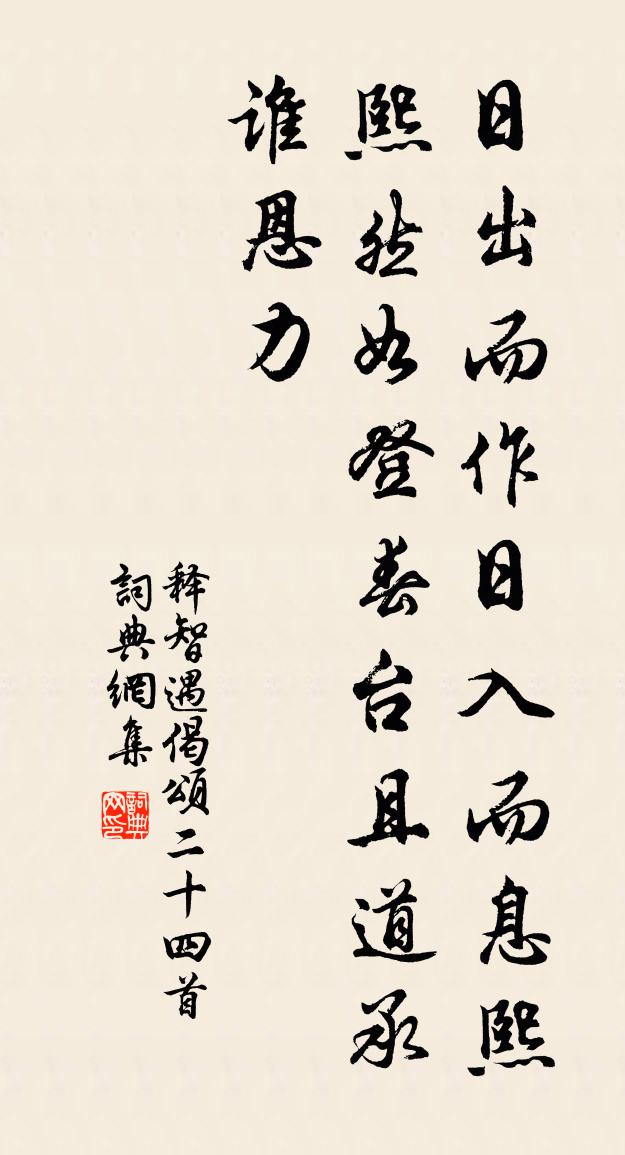 日出而作日入而息熙
熙然如登春台且道承
谁恩力
释智遇偈頌二十四首
詞典網集
詞典网印